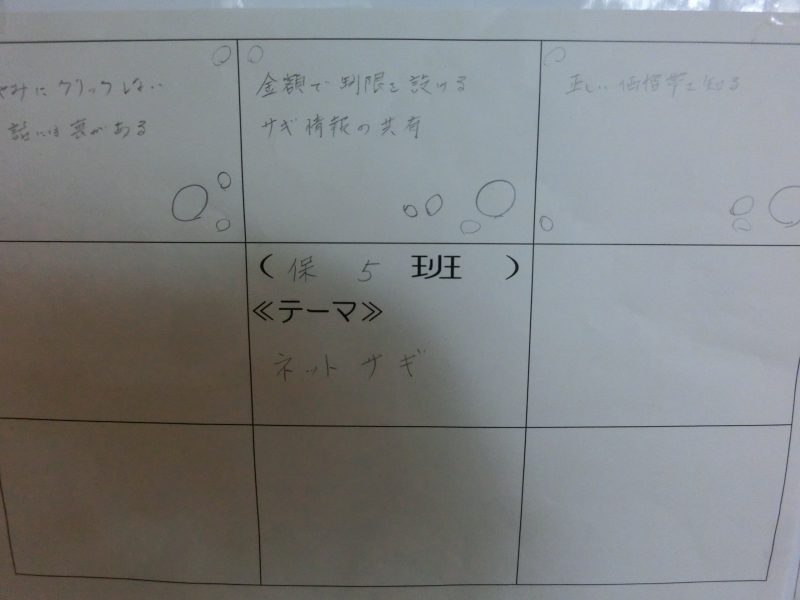 やみにクリックしない
話には裏がある
金額で制限を設ける
サギ情報の共有
正しい価格帯を知る
(保 5 班 )
≪テーマ≫
ネットサギ